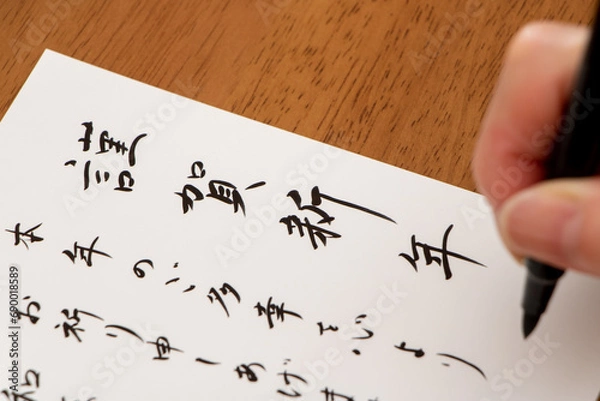 謹賀新年
本年のご多幸を心より
お祈り申しあげま
Adobe Stock | #690018589